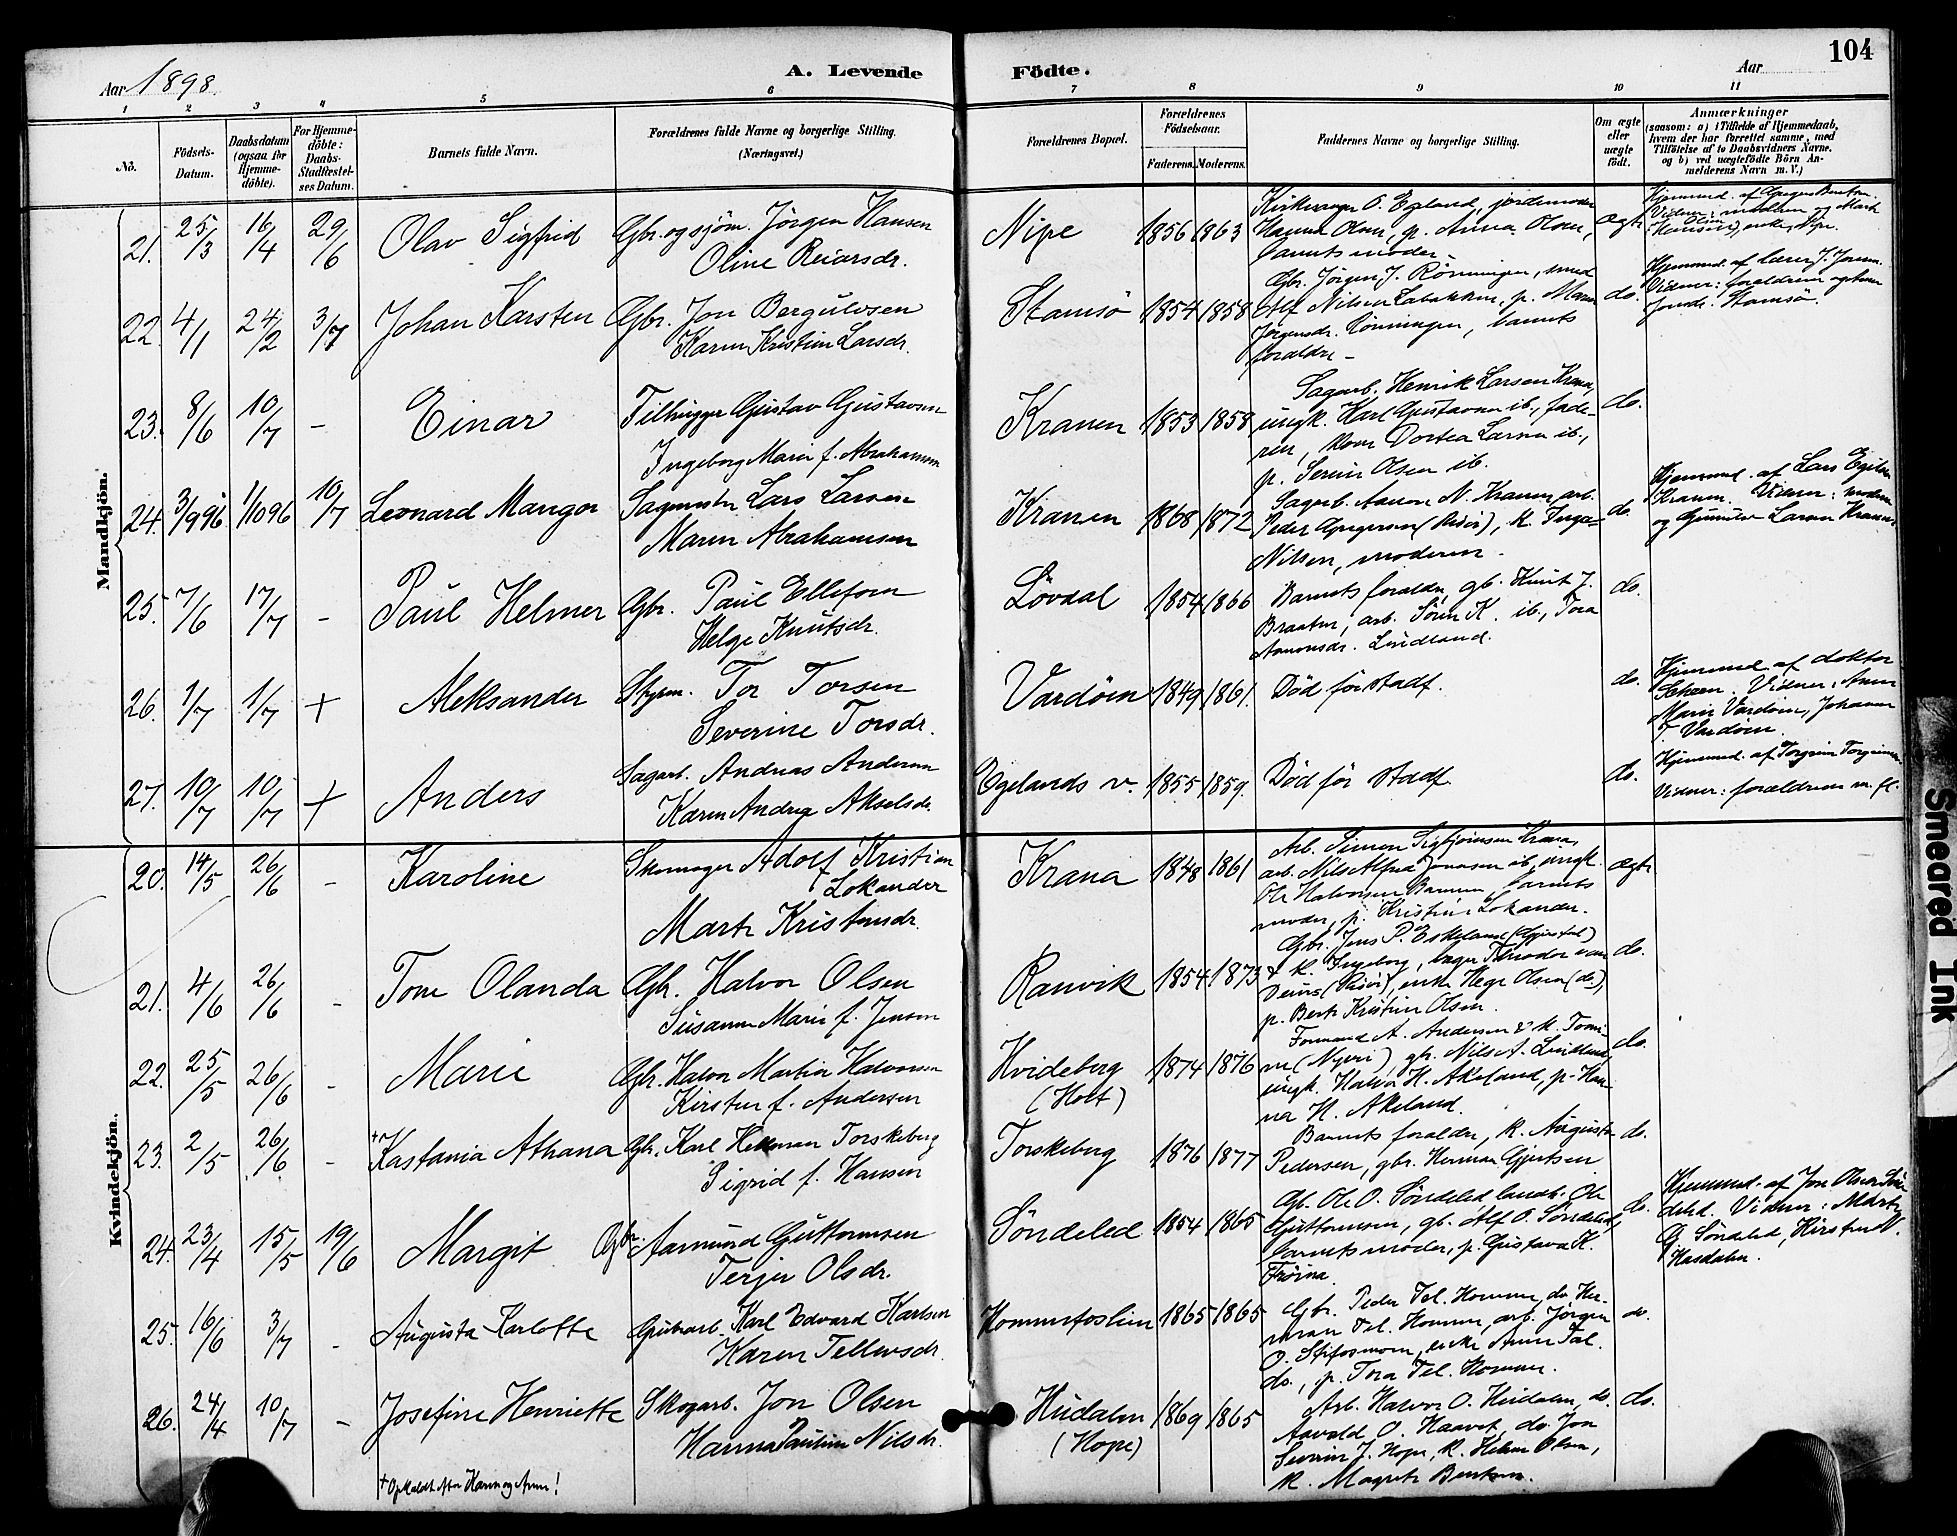 Aar 1898.
A. Levende Födte.
Aar
104
1 2 3 4 5 6 7 8 9 10 11
No.
Födsels-Datum.
Daabsdatum (ogsaa for Hjemme-döbte).
For Hjemme-döbte: Daabs-Stadfæstel-ses Datum.
Barnets fulde Navn.
Forældrenes fulde Navne og borgerlige Stilling. (Næringsvei.)
Forældrenes Bopæl.
Forældrenes Födselsaar.
Faderens. Moderens.
Faddernes Navne og borgerlige Stilling.
Om ægte eller uægte födt.
Anmærkninger
(saasom: a) i Tilfælde af Hjemmedaab, hvem der har forrettet samme, med Tilföielse af to Daabsvidners Navne, og b) ved uægtefödte Börn Anmelderens Navn m. V.)
Mandkjön.
21. 25/3 16/4 29/6 Olav Sigfrid Gbr. og sjöm. Jörgen Hansen
Oline Reiarsdr.
Nipe 1856 1863 Kirkesanger O. Egeland, jordemoder
Hanna Olsen, p. Anna Olsen,
barnets moder. ægte
22. 4/1 24/2 3/7 Johan Karsten Gbr. Jon Bergulvsen
Karen Kristine Larsdr.
Stamsö 1854 1858 Gbr. Jörgen J. Rönningen, smed
Alf Nilsen Labakken, p. Maren
Jörgensdr. Rönningen, barnets
foraldre — do.
23. 8/6 10/7 - Einar Tilhugger Gustav Gustavsen
Ingeborg Marie f. Abrahamsen
Kranen 1853 1858 Sagarb. Henrik Larsen Krana,
ungk. Karl Gustavsen ib., fade-
ren, kone Dortea Larsen ib.,
p. Serine Olsen ib. do.
24. 3/9 96 1/10 96 10/7 Leonard Mangor Sagmester Lars Larsen
Maren Abrahamsen
Kranen 1868 1872 Sagarb. Aanon N. Kranen, arb.
Peder Gregersen (Risör), k. Inga
Nilsen, moderen. do.
Hjemmed. af Lars Egilsen
Kranen. Vidner: moderen
og Gunnilde Larsen Kranen.
25. 7/6 17/7 - Paul Helmer Gbr. Paul Ellefsen
Helge Knutsdr.
Lövdal 1854 1866 Barnets foraldre, gb. Knut J.
Braaten, arb. Sören K. ib., Tora
Aanonsdr. Lindland. do.
26. 1/7 1/7 + Aleksander Styrm. Tor Torsen
Severine Torsdr.
Vardöen 1849 1861. Död för stadf. do.
Hjemmed. af doktor
Scharn. Vidner: Anne
Marie Vardöen, Johanne
T. Vardöen.
27. 10/7 10/7 + Anders Sagarb. Andreas Andersen
Karen Andrea Akselsdr.
Egelands v. 1855 1859. Död för stadf. do.
Hjemmed. af Torgrim Torgrimsen
Vidner: foraldrene m. fl.
Kvindekjön.
20. 14/5 26/6 - Karoline Skomager Adolf Kristian
Lokander
Marte Kristensdr.
Krana 1848 1861 Arb. Simon Sigbjörnsen Krana,
arb. Nils Alfred Jonassen ib., ungk.
Ole Halvorsen, barnets
moder, p. Kristine Lokander. ægte
21. 4/6 26/6 - Tone Olanda Gbr. Halvor Olsen
Susanne Marie f. Jensen
Ranvik 1854 1873 Gbr. Jens P. Eskeland (Gjerstad)
& k. Ingeborg, bager Theodor van
Deurs (Risör), enke Hege Olsen (do.),
p. Berte Kristine Olsen. do.
22. 25/5 26/6 - Marie Gbr. Halvor Martin Halvorsen
Kirsten f. Andersen
Hvideberg
(Holt) 1874 1876 Formand A. Andersen & k. Tomi-
ne (Nyeri), gb. Nils A. Lindland,
ungk. Halvor H. Akeland, p. Han-
na H. Akeland. do.
23. 2/5 26/6 - +Kastania Athana Gbr. Karl Herman Torskeberg
Sigrid f. Hansen
Torskeberg 1876 1877 Barnets foraldre, k. Auguste
Pedersen, gbr. Herman Gjertsen do.
24. 23/4 15/5 19/6 Margit Gbr. Aamund Guttormsen
Terjer Olsdr.
Söndeled 1854 1865 Gb. Ole O. Söndeled, landh. Ole
Guttormsen, gb. Alf O. Söndeled,
barnets moder, p. Gustava K.
Fröina. do.
Hjemmed. af Jon Olsen Sön-
deled. Vidner: Marte
G. Söndeled, Kirsten N.
Hasdalen.
25. 16/6 3/7 - Augusta Karlotte Grubearb. Karl Edvard Karlsen
Karen Tellevsdr.
Hommefoslien 1865 1865 Gbr. Peder Tel. Hommen, do. Her-
man Tel. Hommen, arb. Jörgen
O. Stifosmoen, enke Anne Tal.
do., p. Tora Tel. Hommen. do.
26. 24/4 10/7 - Josefine Henriette Skogarb. Jon Olsen
Hanna Pauline Nilsdr.
Hüdalen
(Hope) 1869 1865 Arb. Halvor O. Hüdalen, do.
Aavald O. Haavet, do. Jon
Severin J. Hope, k. Helene Olsen,
k. Magrete Bentsen. do.
+ Opkaldt efter Karen og Anne!
Smeared Ink